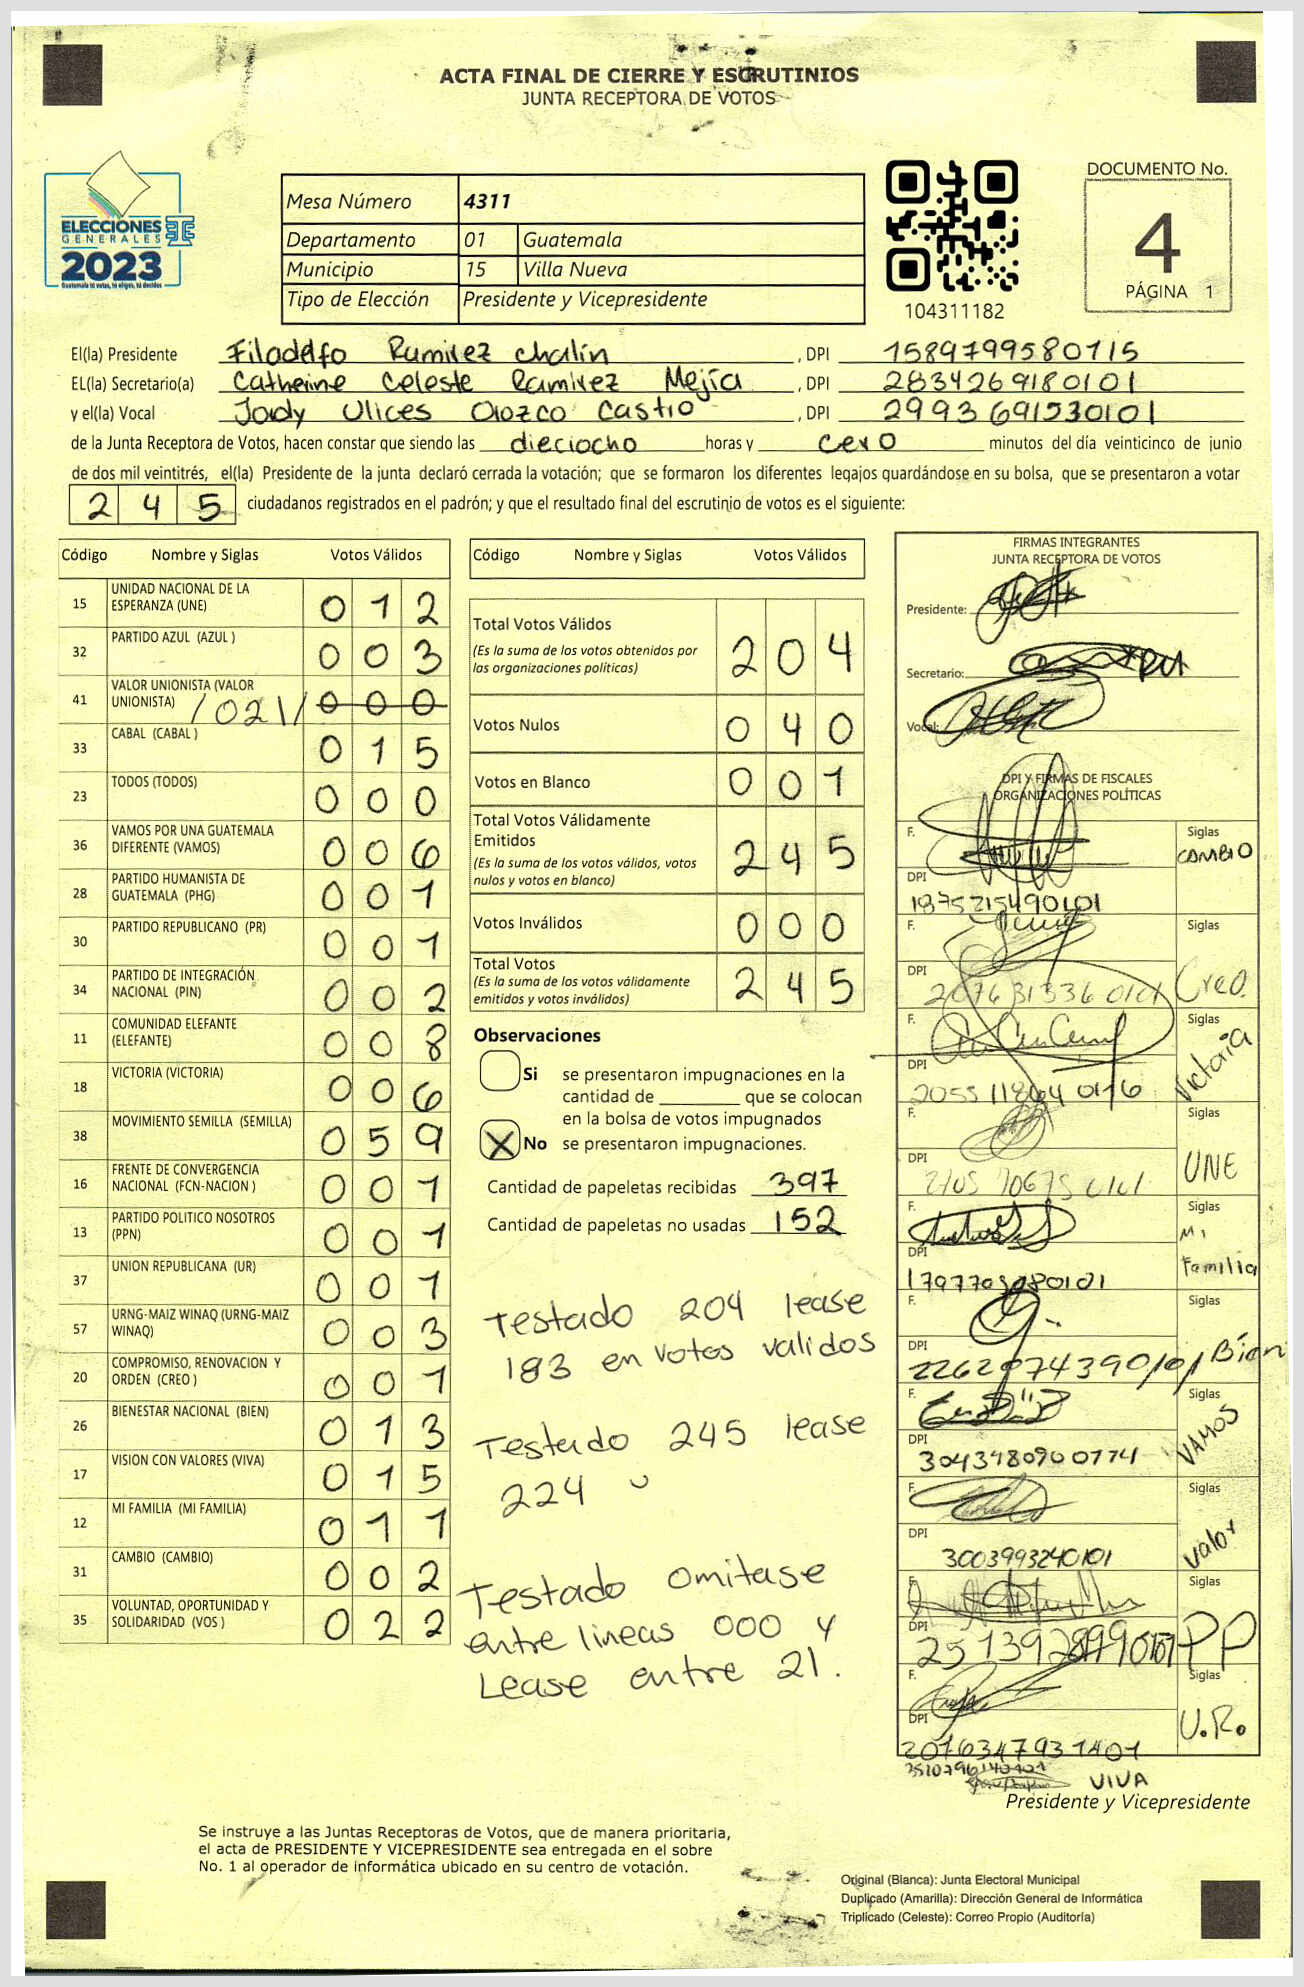 ACTA FINAL DE CIERRE Y ESCRUTINIOS
JUNTA RECEPTORA DE VOTOS
ELECCIONES
GENERALES
2023
Guatemala tú votas, tú eliges, tú decides
Mesa Número 4311
Departamento 01 Guatemala
Municipio 15 Villa Nueva
Tipo de Elección Presidente y Vicepresidente
104311182
DOCUMENTO No.
4
PÁGINA 1
El(la) Presidente Filadelfo Ramirez chalín , DPI 1589799580115
EL(la) Secretario(a) Catherine Celeste Ramirez Mejía , DPI 2834269180101
y el(la) Vocal Jordy Ulices Orozco Castro , DPI 2993691530101
de la Junta Receptora de Votos, hacen constar que siendo las dieciocho horas y cero minutos del día veinticinco de junio
de dos mil veintitrés, el(la) Presidente de la junta declaró cerrada la votación; que se formaron los diferentes legajos guardándose en su bolsa, que se presentaron a votar
245 ciudadanos registrados en el padrón; y que el resultado final del escrutinio de votos es el siguiente:
Código Nombre y Siglas Votos Válidos
15 UNIDAD NACIONAL DE LA ESPERANZA (UNE) 012
32 PARTIDO AZUL (AZUL ) 003
41 VALOR UNIONISTA (VALOR UNIONISTA) /021/ 000
33 CABAL (CABAL ) 015
23 TODOS (TODOS) 000
36 VAMOS POR UNA GUATEMALA DIFERENTE (VAMOS) 006
28 PARTIDO HUMANISTA DE GUATEMALA (PHG) 001
30 PARTIDO REPUBLICANO (PR) 001
34 PARTIDO DE INTEGRACIÓN NACIONAL (PIN) 002
11 COMUNIDAD ELEFANTE (ELEFANTE) 008
18 VICTORIA (VICTORIA) 006
38 MOVIMIENTO SEMILLA (SEMILLA) 059
16 FRENTE DE CONVERGENCIA NACIONAL (FCN-NACION ) 001
13 PARTIDO POLITICO NOSOTROS (PPN) 001
37 UNION REPUBLICANA (UR) 001
57 URNG-MAIZ WINAQ (URNG-MAIZ WINAQ) 003
20 COMPROMISO, RENOVACION Y ORDEN (CREO ) 001
26 BIENESTAR NACIONAL (BIEN) 013
17 VISION CON VALORES (VIVA) 015
12 MI FAMILIA (MI FAMILIA) 011
31 CAMBIO (CAMBIO) 002
35 VOLUNTAD, OPORTUNIDAD Y SOLIDARIDAD (VOS ) 022
Código Nombre y Siglas Votos Válidos
Total Votos Válidos 204
(Es la suma de los votos obtenidos por
las organizaciones políticas)
Votos Nulos 040
Votos en Blanco 001
Total Votos Válidamente
Emitidos 245
(Es la suma de los votos válidos, votos
nulos y votos en blanco)
Votos Inválidos 000
Total Votos 245
(Es la suma de los votos válidamente
emitidos y votos inválidos)
Observaciones
Si se presentaron impugnaciones en la
cantidad de ________ que se colocan
en la bolsa de votos impugnados
X No se presentaron impugnaciones.
Cantidad de papeletas recibidas 397
Cantidad de papeletas no usadas 152
Testado 204 lease
183 en votos validos
Testado 245 lease
224
Testado omitase
entre lineas 000 y
Lease entre 21.
FIRMAS INTEGRANTES
JUNTA RECEPTORA DE VOTOS
Presidente:
Secretario:
Vocal:
DPI Y FIRMAS DE FISCALES
ORGANIZACIONES POLÍTICAS
F. Siglas
CAMBIO
DPI
1875215490101
F. Siglas
DPI
2076313360101 Creo.
F. Siglas
Victoria
DPI
F.
Siglas
DPI
UNE
F. Siglas
Mi
Familia
DPI
F. Siglas
DPI
Bien
F. Siglas
VAMOS
DPI
3043980900774
F. Siglas
DPI
3003993240101 Valor
F. Siglas
DPI
PP
F. Siglas
DPI
U.R.
2016347931401
VIVA
Presidente y Vicepresidente
Se instruye a las Juntas Receptoras de Votos, que de manera prioritaria,
el acta de PRESIDENTE Y VICEPRESIDENTE sea entregada en el sobre
No. 1 al operador de informática ubicado en su centro de votación.
Original (Blanca): Junta Electoral Municipal
Duplicado (Amarilla): Dirección General de Informática
Triplicado (Celeste): Correo Propio (Auditoría)